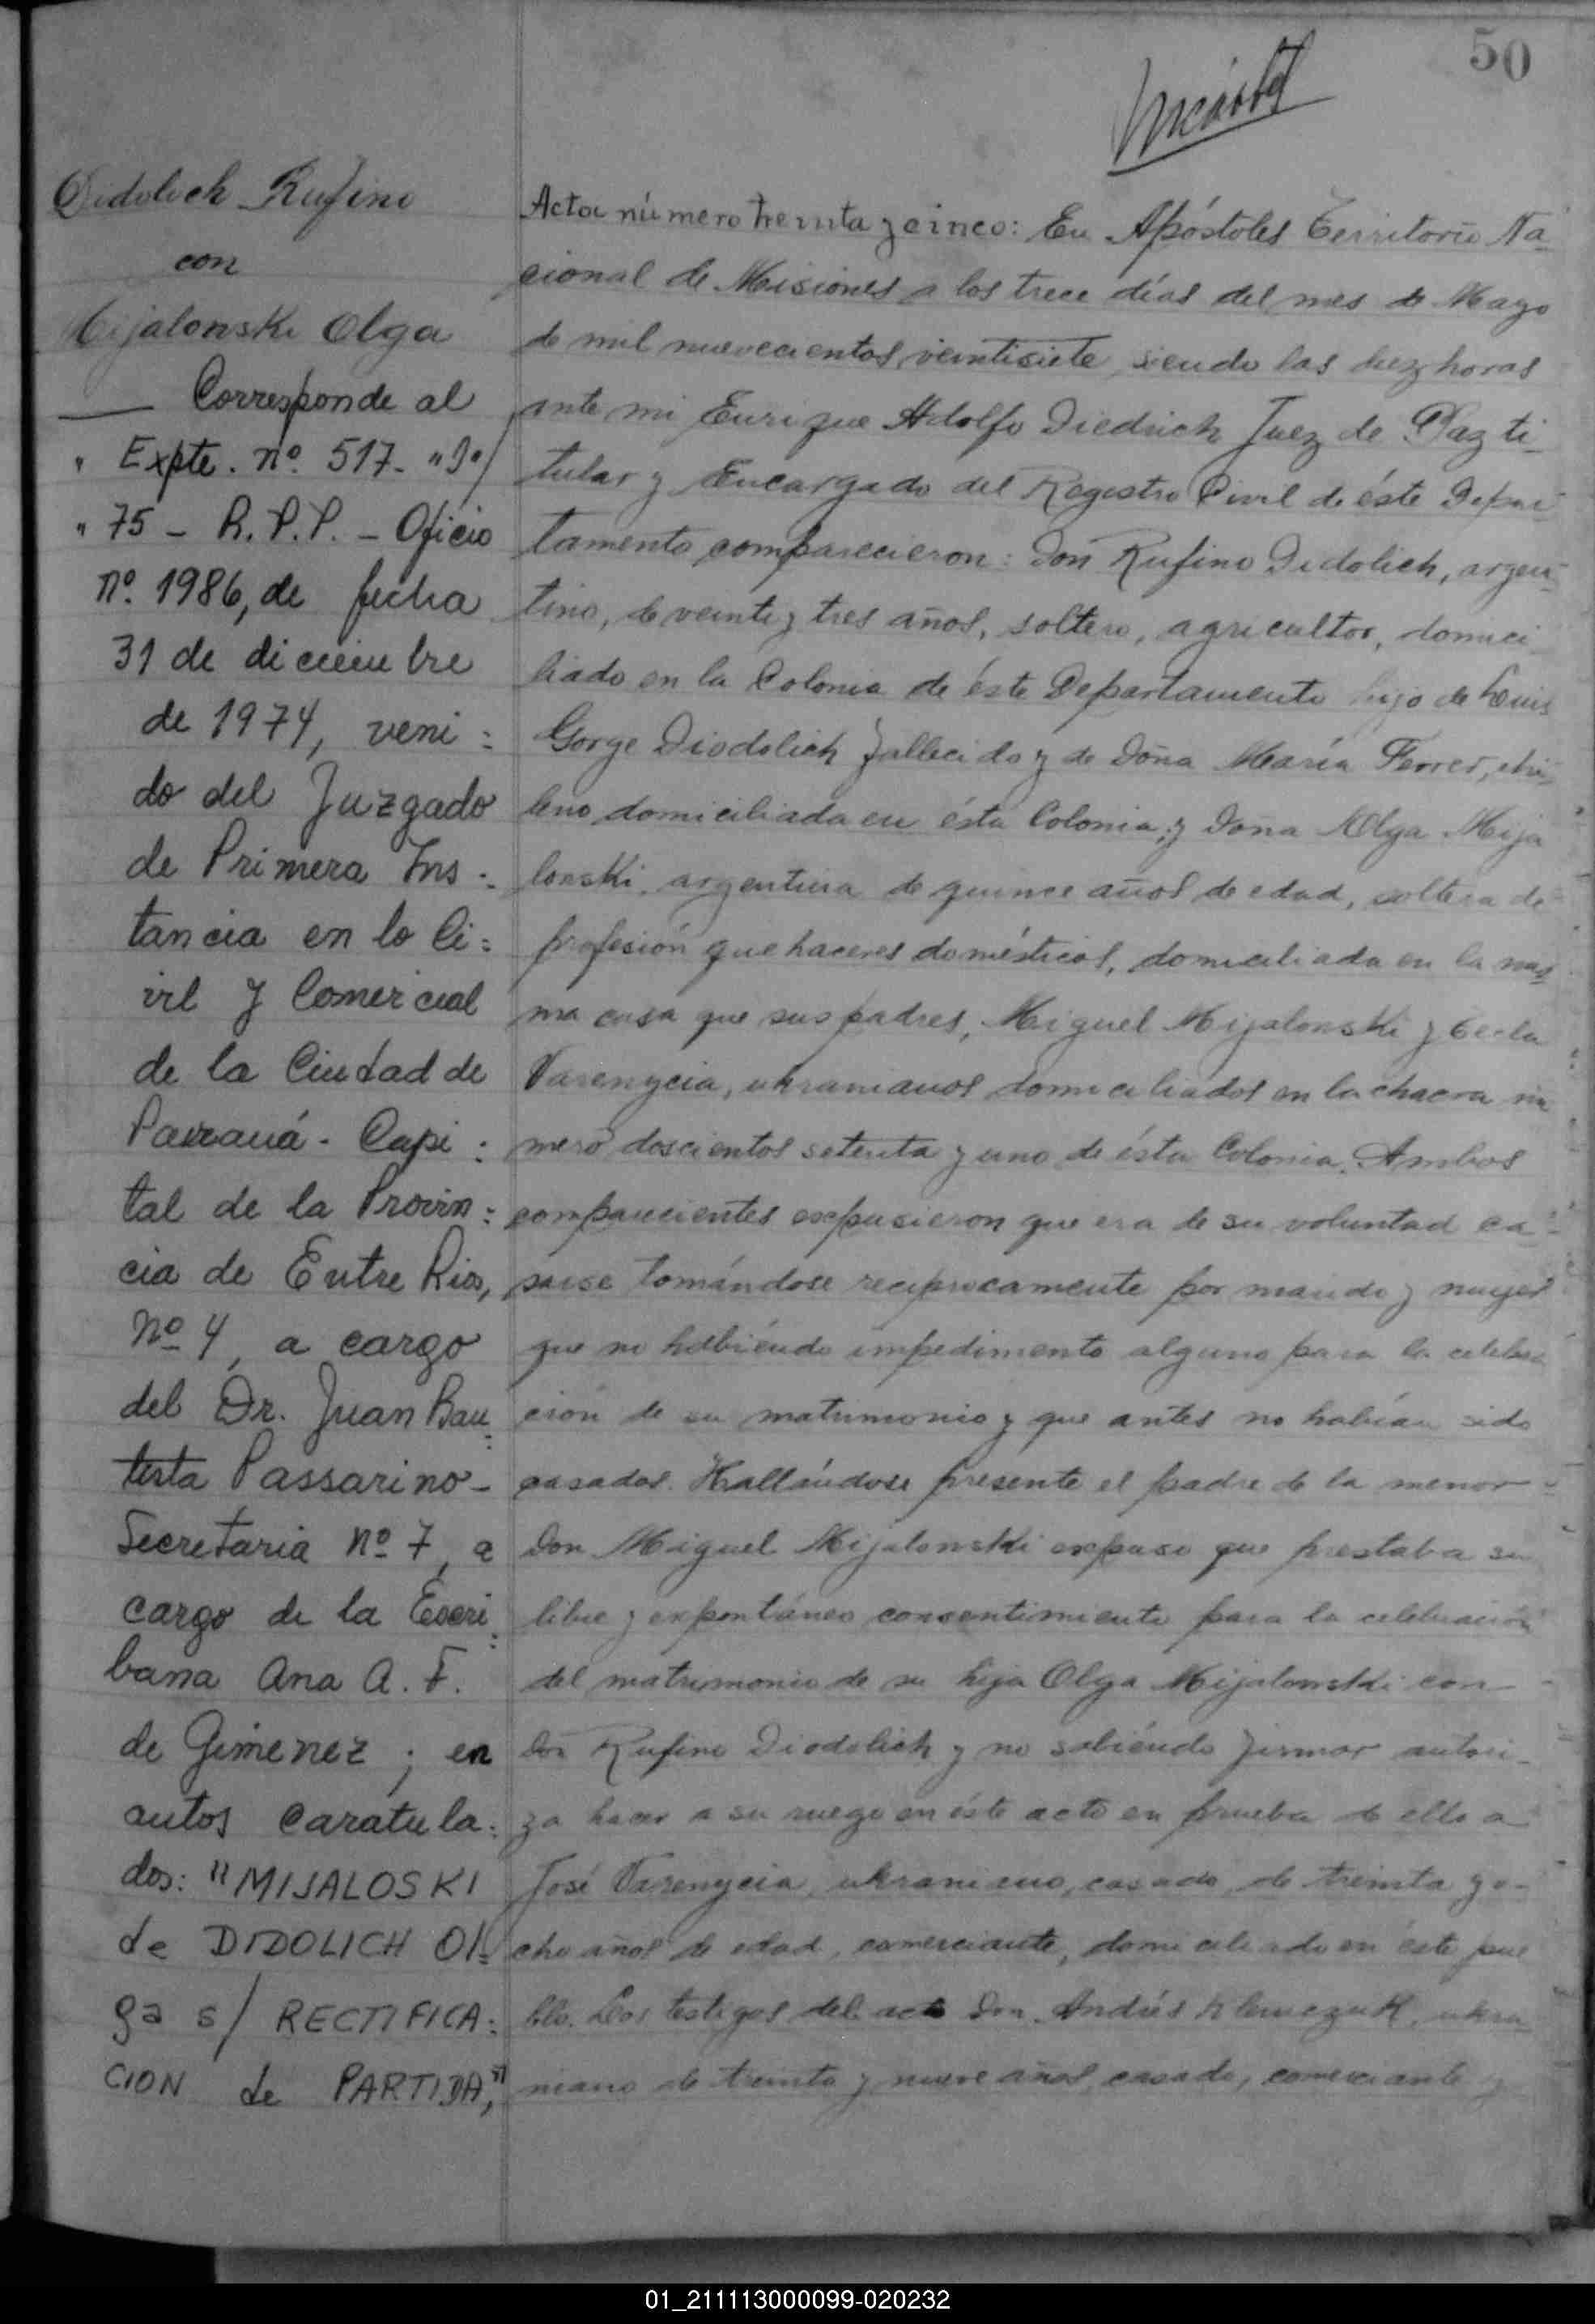 50
Didolich Rufino
con
Mijalonski Olga
Corresponde al
" Expte. nº 517- "D"/
" 75 - R.P.P. - Oficio
nº 1986, de fecha
31 de diciembre
de 1974, veni=
do del Juzgado
de Primera Ins=
tancia en lo Ci=
vil y Comercial
de la Ciudad de
Paraná - Capi=
tal de la Provin=
cia de Entre Rios,
nº 4, a cargo
del Dr. Juan Bau=
tista Passarino-
Secretaria nº 7, a
cargo de la Escri=
bana Ana A. F.
de Gimenez; en
autos caratula=
dos: "MIJALOSKI
de DIDOLICH Ol=
ga s/ RECTIFICA=
CION de PARTIDA",
Acta número treinta y cinco: En Apóstoles Territorio Na-
cional de Misiones a los trece días del mes de Mayo
de mil nuevecientos veintisiete, siendo las diez horas
ante mi Enrique Adolfo Diedrich Juez de Paz ti-
tular y Encargado del Registro Civil de éste Depar-
tamento comparecieron: Don Rufino Didolich, argen-
tino, de veinte y tres años, soltero, agricultor, domici-
liado en la Colonia de éste Departamento hijo de Luis
Gorge Diodolich fallecido y de Doña María Ferrer, chi-
leno domiciliada en ésta Colonia; y Doña Olga Mija
lonski, argentina de quince años de edad, soltera de
profesión que haceres domésticos, domiciliada en la mis
ma casa que sus padres, Miguel Mijalonski y Tecla
Varenycia, ukranianos domiciliados en la chacra nú
mero doscientos setenta y uno de ésta Colonia. Ambos
comparecientes expusieron que era de su voluntad ca-
sarse tomándose reciprocamente por marido y mujer
que no habiéndo impedimento alguno para la celebra
ción de su matrimonio y que antes no habían sido
casados. Hallándose presente el padre de la menor
Don Miguel Mijalonski expuso que prestaba su
libre y expontáneo consentimiento para la celebración
del matrimonio de su hija Olga Mijalonski con
Don Rufino Diodolich y no sabiéndo firmar autori-
za hacer a su ruego en éste acto en prueba de ello a
José Varenycia, ukraniano, casado, de treinta y o-
cho años de edad, comerciante, domiciliado en éste pue
blo. Los testigos del acto Don Andrés Klemczuk, ukra
niano de treinta y nueve años, casado, comerciante y
01_211113000099-020232